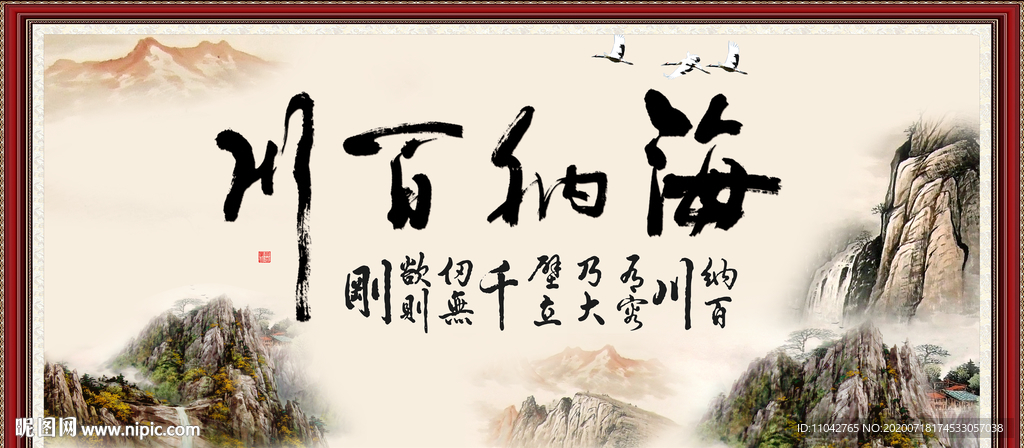 海納百川
納百
川
有容
乃大
壁立
千
仞無
欲則
剛
昵图网 www.nipic.com
ID:11042765 NO:20200718174533057038